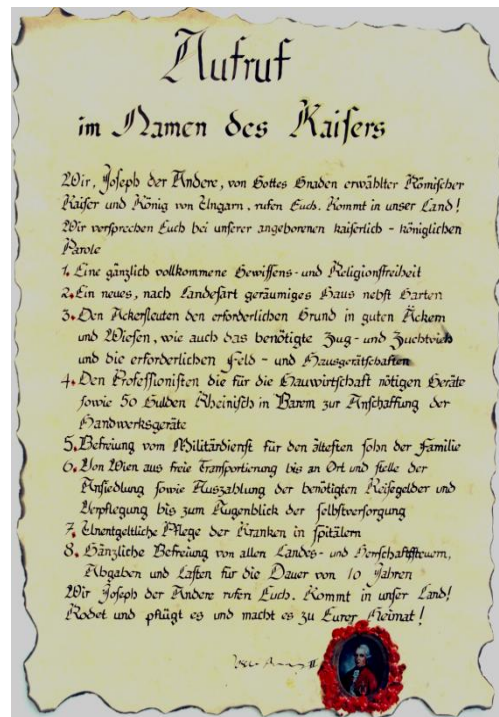 Aufruf
im Namen des Kaisers
Wir, Joseph der Andere, von Gottes Gnaden erwählter Römischer
Kaiser und König von Ungarn, rufen Euch. Kommt in unser Land!
Wir versprechen Euch bei unserer angeborenen kaiserlich - königlichen
Parole
1. Eine gänzlich vollkommene Gewissens- und Religionsfreiheit
2. Ein neues, nach Landesart geräumiges Haus nebst Garten
3. Den Ackersleuten den erforderlichen Grund in guten Äckern
und Wiesen, wie auch das benötigte Zug- und Zuchtvieh
und die erforderlichen Feld - und Hausgerätschaften
4. Den Professionisten die für die Hauwirtschaft nötigen Geräte
sowie 50 Gulden Rheinisch in Barem zur Anschaffung der
Handwerksgeräte
5. Befreiung vom Militärdienst für den ältesten sohn der Familie
6. Von Wien aus freie Transportierung bis an Ort und stelle der
Ansiedlung sowie Auszahlung der benötigten Reisegelder und
Verpflegung bis zum Augenblick der selbstversorgung
7. Unentgeltliche Pflege der Kranken in spitälern
8. Gänzliche Befreiung von allen Landes- und Herrschaftssteuern,
Abgaben und Lasten für die Dauer von 10 Jahren
Wir Joseph der Andere rufen Euch. Kommt in unser Land!
Rodet und pflügt es und macht es zu Eurer Heimat!